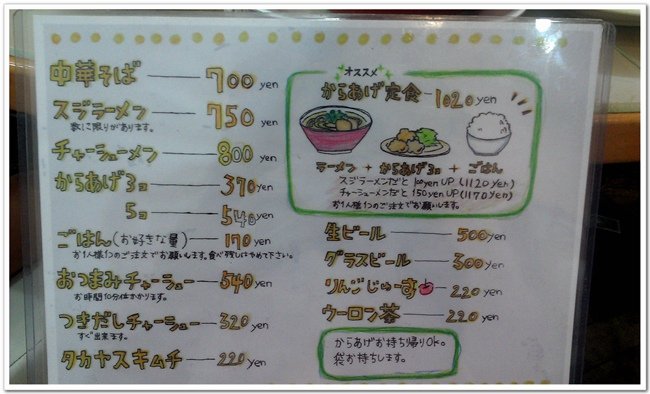 中華そば 700 yen
スジラーメン 750 yen
数に限りがあります。
チャーシューメン 800 yen
からあげ3コ 370 yen
5コ 540 yen
ごはん(お好きな量) 170 yen
お1人様1つのご注文でお願いします。食べ残しはやめて下さい。
おつまみチャーシュー 540 yen
お時間10分位かかります。
つきだしチャーシュー 320 yen
すぐ出来ます。
タカヤスキムチ 220 yen
オススメ
からあげ定食 1020 yen
ラーメン + からあげ3コ + ごはん
スジラーメンだと 100yen UP (1120 yen)
チャーシューメンだと 150yen UP (1170 yen)
お1人様1つのご注文でお願いします。
生ビール 500 yen
グラスビール 300 yen
りんごじゅーす 220 yen
ウーロン茶 220 yen
からあげお持ち帰りOk。
袋お持ちします。